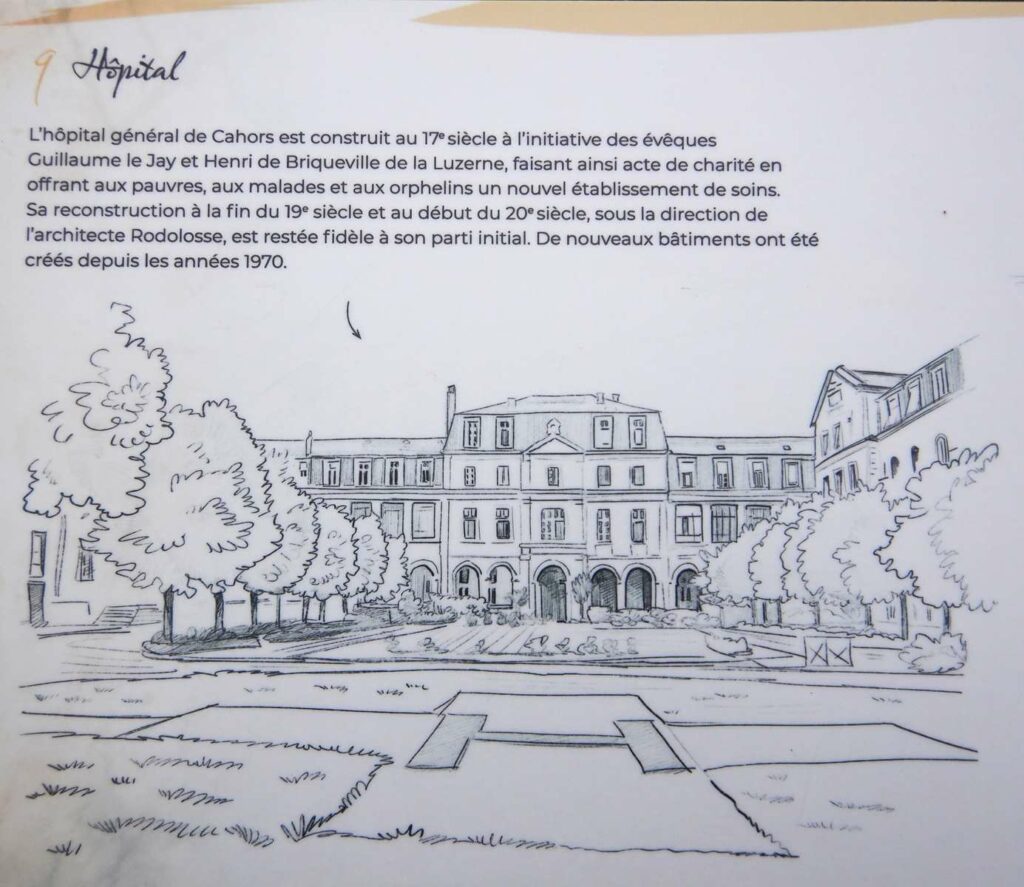 9 Hôpital
L'hôpital général de Cahors est construit au 17e siècle à l'initiative des évêques
Guillaume le Jay et Henri de Briqueville de la Luzerne, faisant ainsi acte de charité en
offrant aux pauvres, aux malades et aux orphelins un nouvel établissement de soins.
Sa reconstruction à la fin du 19e siècle et au début du 20e siècle, sous la direction de
l'architecte Rodolosse, est restée fidèle à son parti initial. De nouveaux bâtiments ont été
créés depuis les années 1970.